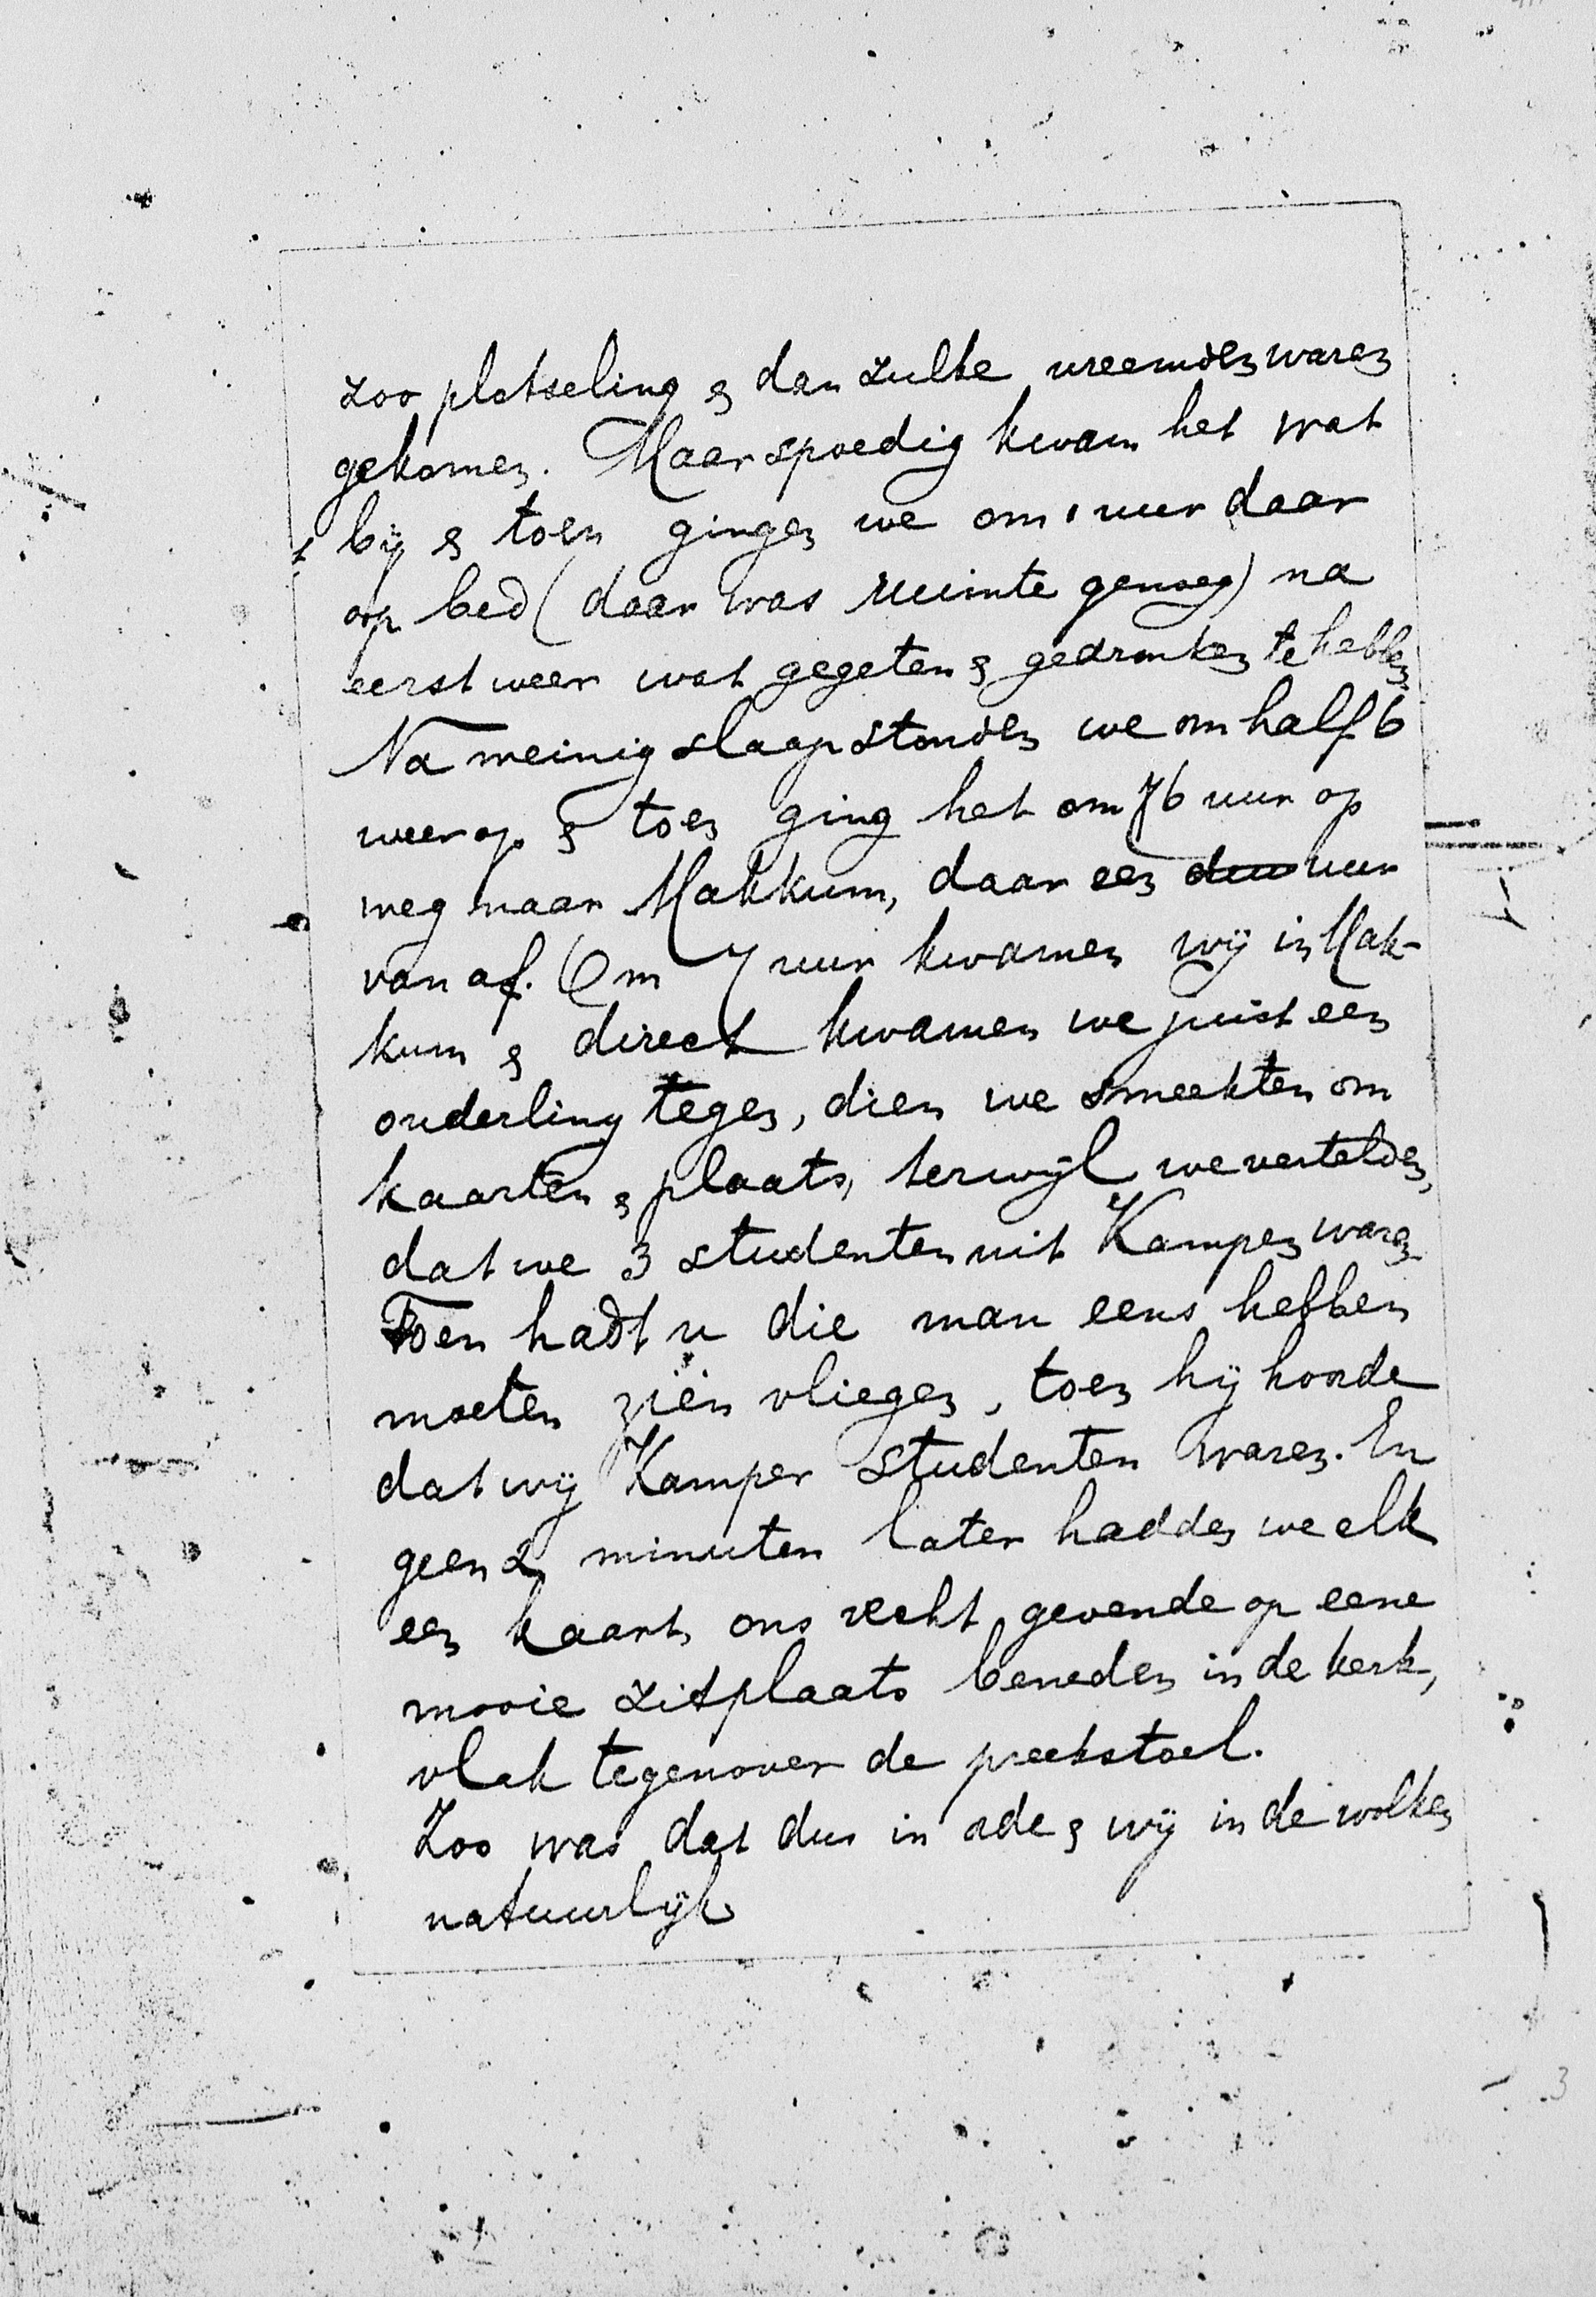 zoo plotseling & dan zulke vreemden waren
gekomen. Maar spoedig kwam het wat
bij & toen gingen we om 1 uur daar
op bed (daar was ruimte genoeg) na
eerst weer wat gegeten & gedronken te hebben.
Na weinig slaap stonden we om half 6
weer op & toen ging het om 6 uur op
weg naar Makkum, daar een uur
van af. Om 7 uur kwamen wij in Mak-
kum & direct kwamen we juist een
ouderling tegen, dien we smeekten om
kaarten & plaats, terwijl we vertelden,
dat we 3 studenten uit Kampen waren.
Toen hadt u die man eens hebben
moeten zien vliegen, toen hij hoorde
dat wij Kamper studenten waren. En
geen 2 minuten later hadden we elk
een kaart, ons recht gevende op eene
mooie zitplaats beneden in de kerk,
vlak tegenover de preekstoel.
Zoo was dat dus in orde & wij in de wolken
natuurlijk
3